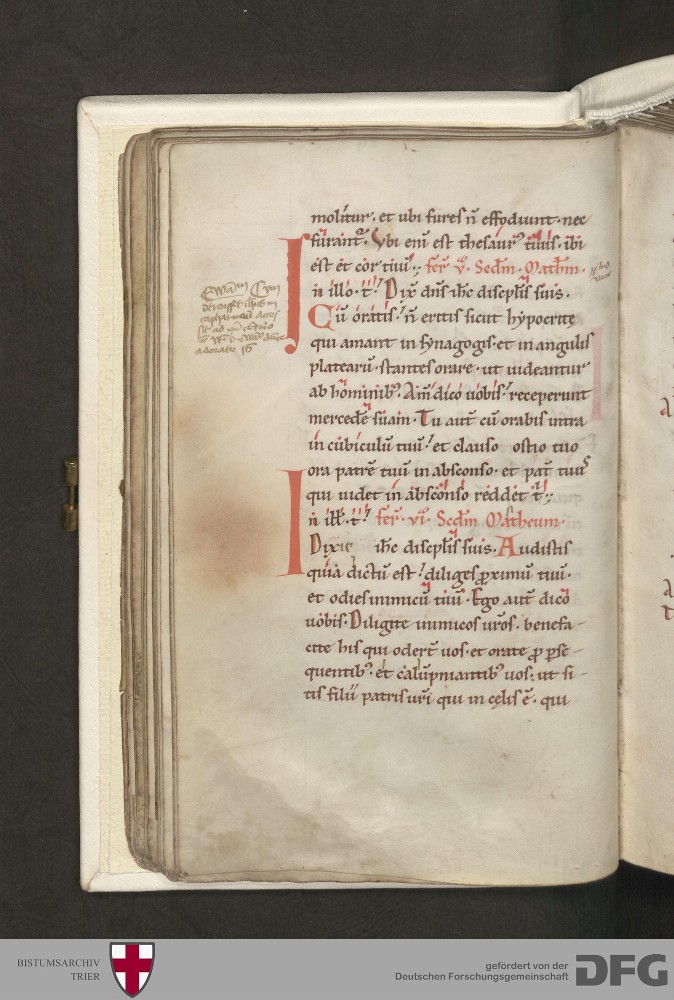 molitur · et ubi fures ñ effodiunt · nec
furant᷑ · Vbi eni᷑ est thesaur᷒ tuus · ibi
est et cor tuū · fer᷑ · v · Scd̄m · Math̄m ·
n illo · t᷑ · Dix̄ dn̄s ih̄c discipl̄is suis ·
Cū oratis · ñ eritis sicut hypocritę
qui amant in synagogis · et in angulis
platearū · stantes orare · ut uideantur
ab hominib᷒ · Am̄ dico uobis · receperunt
mercedē suam · Tu aut̄ cū orabis intra
in cubiculū tuū · et clauso ostio tuo
ora patrē tuū in absconso · et pat̄ tuus
qui uidet in absconso reddet t᷑ ·
n ill̄ · t᷑ · fer᷑ · vi · Scd̄m Matheum ·
Dixit ih̄c discipl̄is suis · Audistis
quia dictū est · diliges ꝓximū tuū ·
et odies inimicū tuū · Ego aut̄ dico
uobis · Diligite inimicos ur̄os · benefa-
cite his qui oder̄t uos · et orate ꝓ ꝑse-
quentib᷒ · et calūpniantib᷒ uos · ut si-
tis filii patris ur̄i qui in cęlis ē · qui
BISTUMSARCHIV
TRIER
gefördert von der
Deutschen Forschungsgemeinschaft
DFG